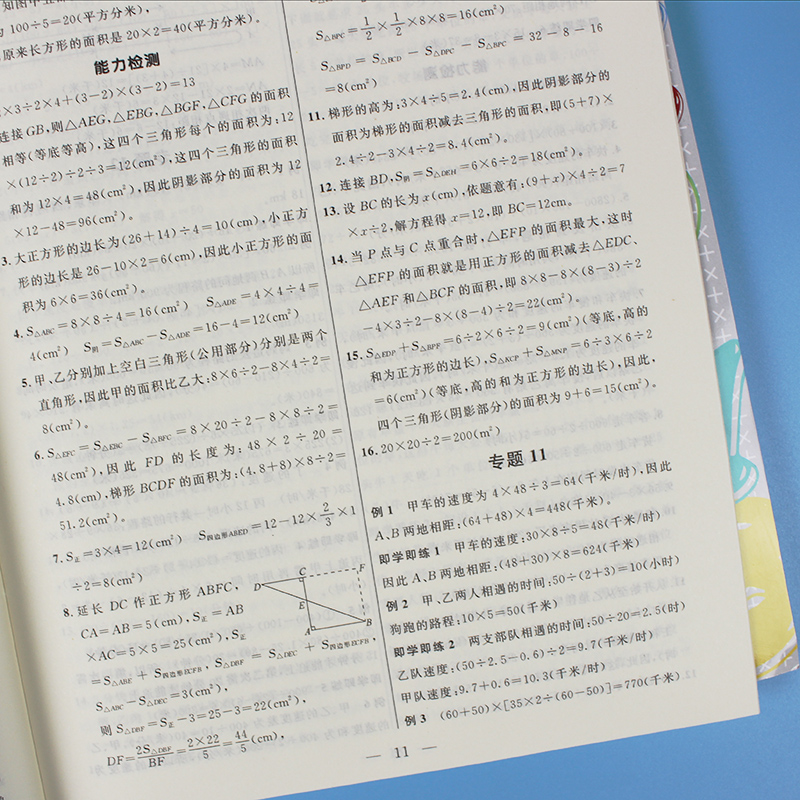 为 100÷5=20(平方分米),
原来长方形的面积是 20×2=40(平方分米)。
能力检测
×3÷2×4+(3-2)×(3-2)=13
连接 GB,则△AEG,△EBG,△BGF,△CFG 的面积
相等(等底等高),这四个三角形每个的面积为:12
×(12÷2)÷2÷3=12(cm²),这四个三角形的面积
和为 12×4=48(cm²),因此阴影部分的面积为 12
×12-48=96(cm²)。
3. 大正方形的边长为(26+14)÷4=10(cm),小正方
形的边长是 26-10×2=6(cm),因此小正方形的面
积为 6×6=36(cm²)。
4. S△ABC=8×8÷4=16(cm²) S△ADE=4×4÷4=
4(cm²) S阴=S△ABC-S△ADE=16-4=12(cm²)
5. 甲、乙分别加上空白三角形(公用部分)分别是两个
直角形,因此甲的面积比乙大:8×6÷2-8×4÷2=
8(cm²)。
6. S△EFC=S△EBC-S△BFC=8×20÷2-8×8÷2=
48(cm²),因此 FD 的长度为:48×2÷20=
4.8(cm),梯形 BCDF 的面积为:(4.8+8)×8÷2=
51.2(cm²)。
7. S正=3×4=12(cm²) S四边形ABED=12-12×2/3×1
÷2=8(cm²)
8. 延长 DC 作正方形 ABFC,
CA=AB=5(cm),S正=AB
×AC=5×5=25(cm²),S正
=S△ABE+S四边形ECFB,S△DBF=S△DEC+S四边形ECFB,
S△ABC-S△DEC=3(cm²),
则 S△DBF=S正-3=25-3=22(cm²),
DF=2S△DBF/BF=2×22/5=44/5(cm),
D
C
F
E
A
B
S△BPC=1/2×1/2×8×8=16(cm²)
S△BPD=S△BCD-S△DPC-S△BPC=32-8-16
=8(cm²)
11. 梯形的高为:3×4÷5=2.4(cm),因此阴影部分的
面积为梯形的面积减去三角形的面积,即(5+7)×
2.4÷2-3×4÷2=8.4(cm²)。
12. 连接 BD,S阴=S△DEH=6×6÷2=18(cm²)。
13. 设 BC 的长为 x(cm),依题意有:(9+x)×4÷2=7
×x÷2,解方程得 x=12,即 BC=12cm。
14. 当 P 点与 C 点重合时,△EFP 的面积最大,这时
△EFP 的面积就是用正方形的面积减去△EDC、
△AEF 和△BCF 的面积,即 8×8-8×(8-3)÷2
-4×3÷2-8×(8-4)÷2=22(cm²)。
15. S△EDP+S△BPF=6÷2×6÷2=9(cm²)(等底,高的
和为正方形的边长),S△KCP+S△MNP=6÷3×6÷2
=6(cm²)(等底,高的和为正方形的边长),因此,
四个三角形(阴影部分)的面积为 9+6=15(cm²)。
16. 20×20÷2=200(m²)
专题 11
例 1 甲车的速度为 4×48÷3=64(千米/时),因此
A、B 两地相距:(64+48)×4=448(千米)。
即学即练 1 甲车的速度:30×8÷5=48(千米/时)
因此 A、B 两地相距:(48+30)×8=624(千米)
例 2 甲、乙两人相遇的时间:50÷(2+3)=10(小时)
狗跑的路程:10×5=50(千米)
即学即练 2 两支部队相遇的时间:50÷20=2.5(时)
乙队速度:(50÷2.5-0.6)÷2=9.7(千米/时)
甲队速度:9.7+0.6=10.3(千米/时)
例 3 (60+50)×[35×2÷(60-50)]=770(千米)
— 11 —